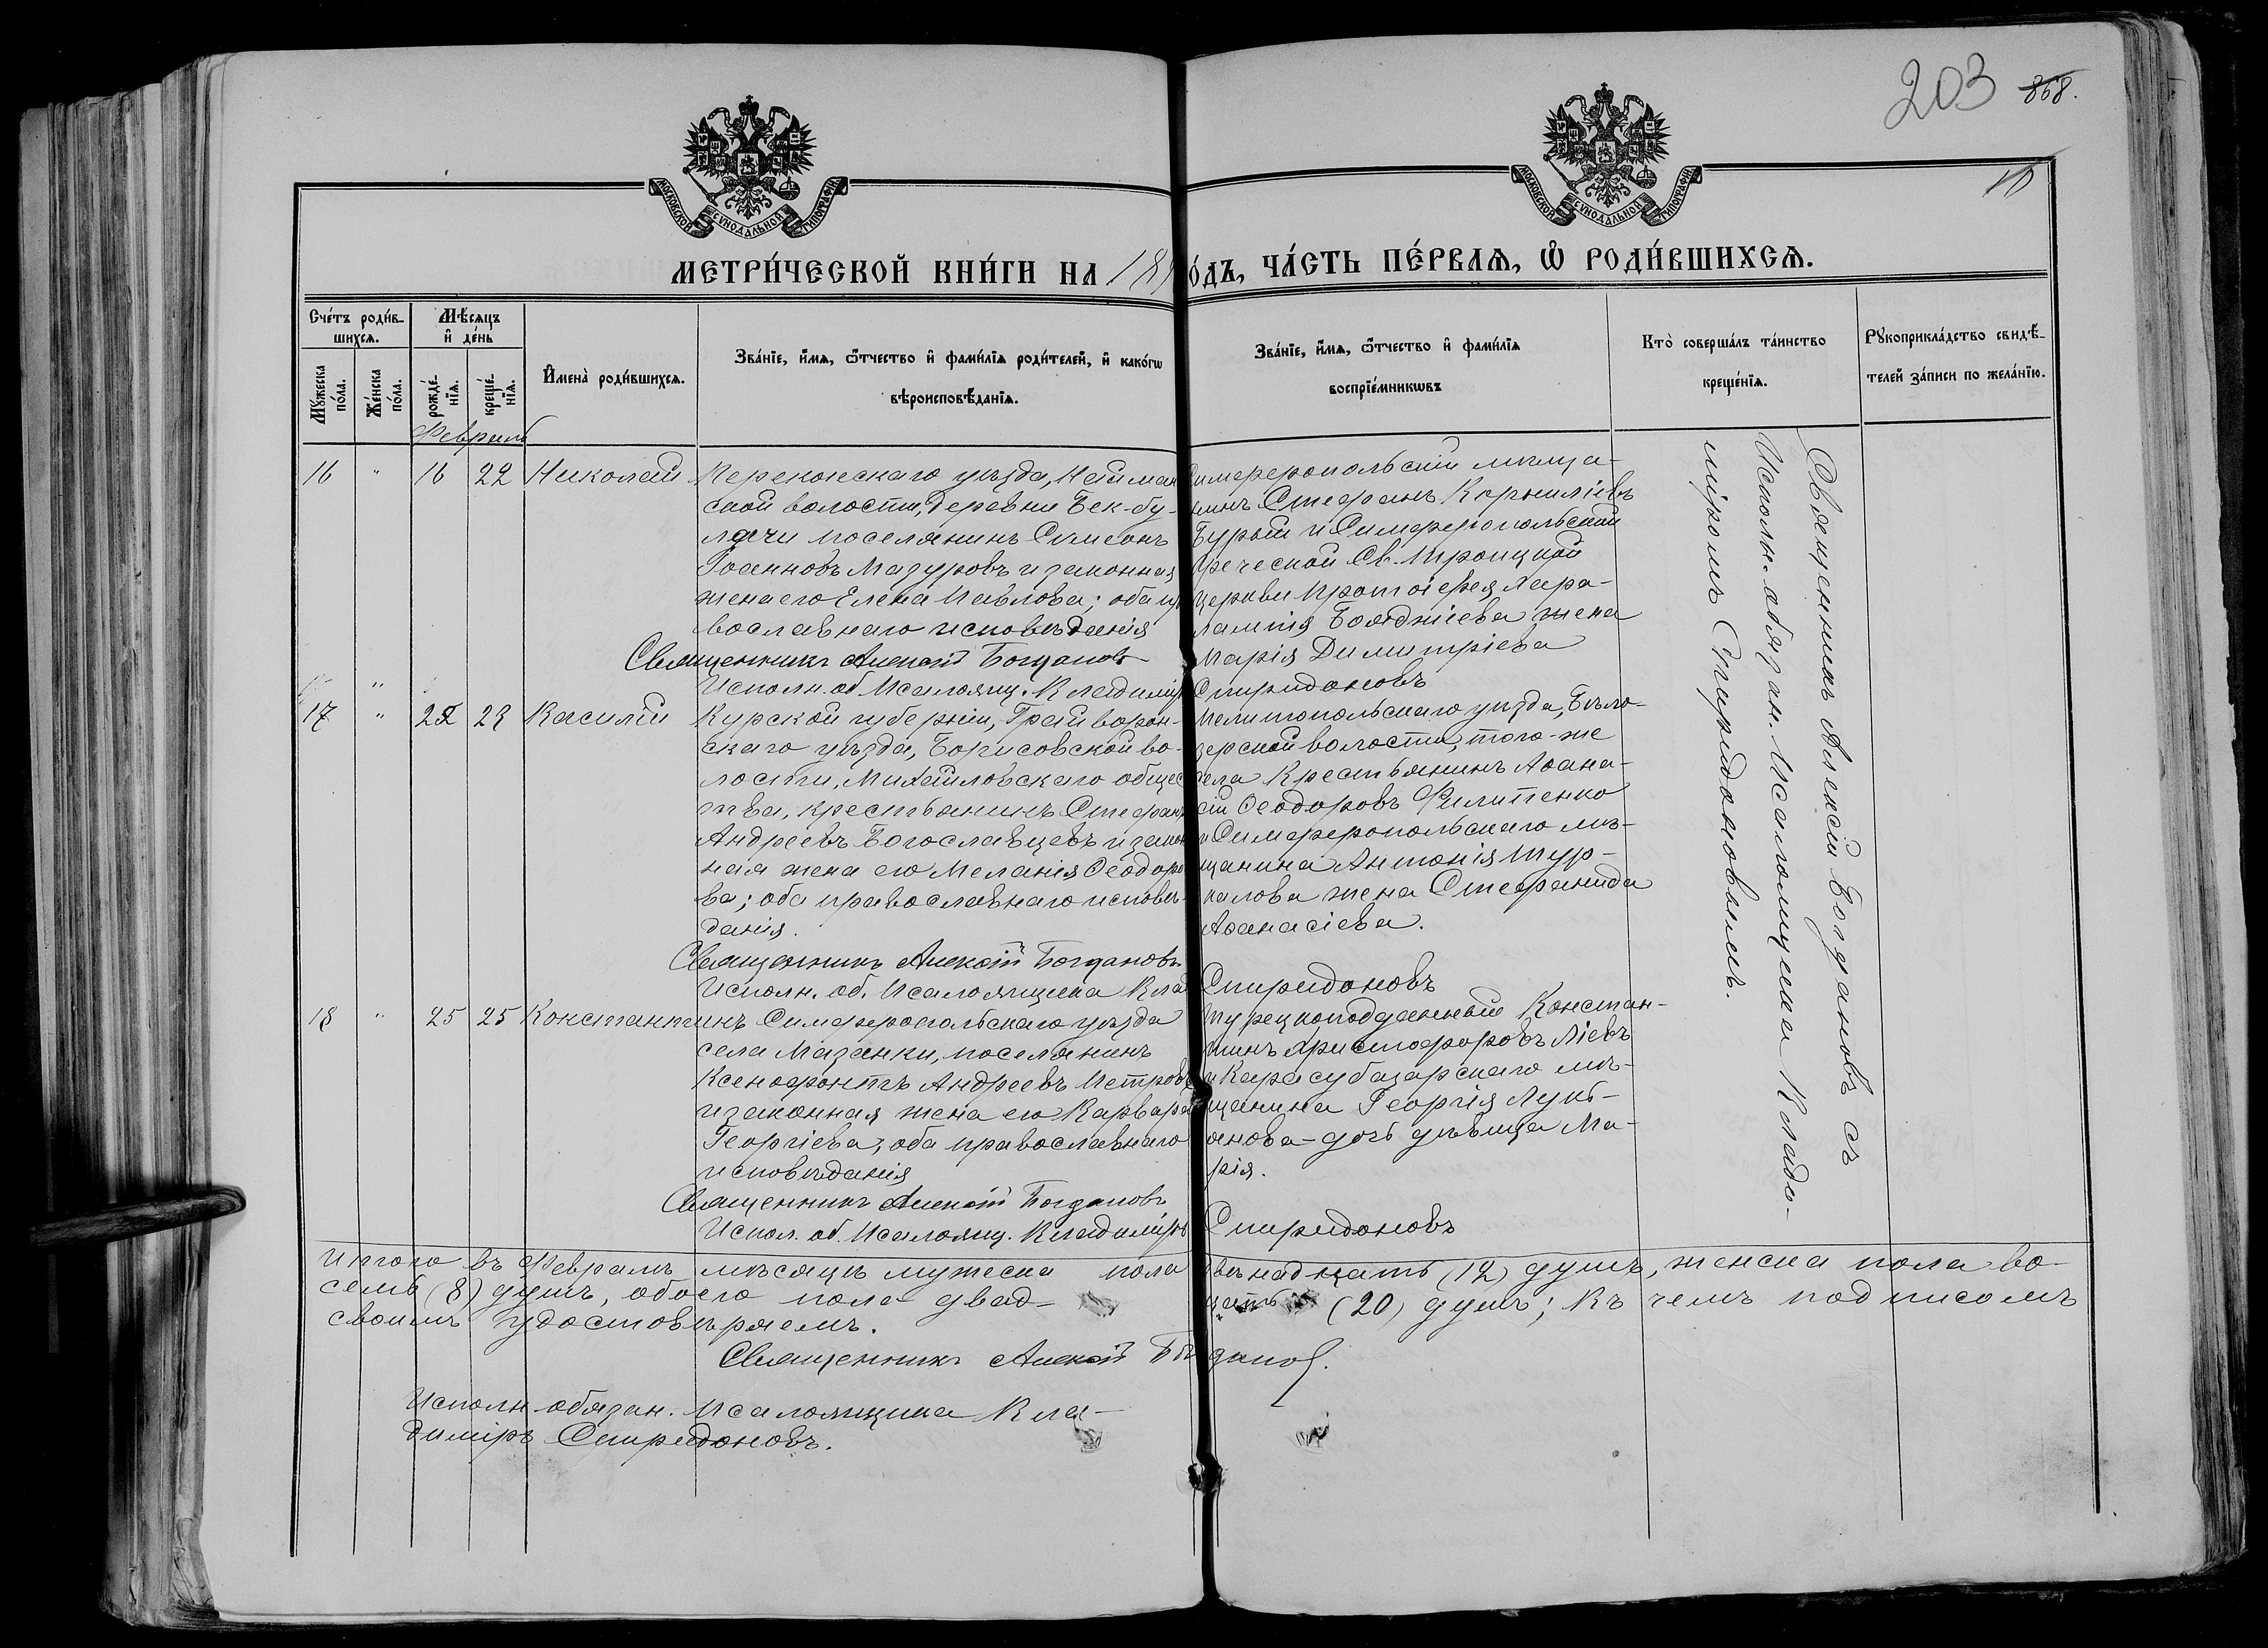 203 868.
10
МОСКОВСКОЙ СѴНОДАЛЬНОЙ ТИПОГРАФІИ
МОСКОВСКОЙ СѴНОДАЛЬНОЙ ТИПОГРАФІИ
МЕТРИ́ЧЕСКОЙ КНИ́ГИ НА 189
О́ДЪ, ЧА́СТЬ ПЕ́РВАѦ, Ѡ҆ РОДИ́ВШИХСѦ.
Сче́тъ роди́в-
шихсѧ.
Мꙋ́жеска по́ла.
Же́нска по́ла.
Мѣ́сѧцъ
и҆ де́нь
рожде́-
нїѧ.
креще́-
нїѧ.
И҆мена̀ роди́вшихсѧ.
Зва́нїе, и҆́мѧ, ѻ҆́тчество и҆ фами́лїѧ роди́телей, и҆ како́гѡ
вѣроисповѣ́данїѧ.
Зва́нїе, и҆́мѧ, ѻ҆́тчество и҆ фами́лїѧ
воспрїе́мникѡвъ
Кто̀ соверша́лъ та́инство
креще́нїѧ.
Рꙋкоприкла́дство свидѣ́-
телей за́писи по жела́нїю.
Февраль
16 " 16 22 Николай
Перекопскаго уѣзда, Найман
ской волости, деревни Бек-бу-
лачи поселянинъ Симеонъ
Іоанновъ Мазуровъ и законная
жена его Елена Павлова; оба пра
вославнаго исповѣданія
Священникъ Алексій Богдановъ
Исполн. об. Псаломщ. Владиміръ
Симферопольскій мѣща-
нинъ Стефанъ Корниліевъ
Бурый и Симферопольской
Греческой Св. Троицкой
церкви Протоіерея Хара-
лампія Бояджіева жена
Марія Димитріева
Спиридоновъ
17 " 22 23 Василій
Курской губерніи, Грайворон-
скаго уѣзда, Борисовской во-
лости, Михайловскаго общес
тва, крестьянинъ Стефанъ
Андреевъ Богославцевъ и закон
ная жена его Меланія Ѳеодоро
ва; оба православнаго исповѣ-
данія.
Священникъ Алексій Богдановъ
Исполн. об. Псаломщика Влад
Мелитопольскаго уѣзда, Бѣло-
зерской волости, того-же
села Крестьянинъ Аѳана-
сій Ѳеодоровъ Филипенко
и Симферопольскаго мѣ-
щанина Антонія Тур-
калова жена Стефанида
Аѳанасіева.
Спиридоновъ
18 " 25 25 Константинъ
Симферопольскаго уѣзда
села Мазанки, поселянинъ
Ксенофонтъ Андреевъ Петровъ
и законная жена его Варвара
Георгіева; оба православнаго
исповѣданія
Священникъ Алексій Богдановъ
Испол. об. Псаломщ. Владиміръ
Турецкоподданный Констан-
тинъ Христофоровъ Ліевъ
и Карасубазарскаго мѣ-
щанина Георгія Лукь-
янова - дочь дѣвица Ма-
рія.
Спиридоновъ
Священникъ Алексій Богдановъ съ
Исполн. обязан. Псаломщика Влади-
міромъ Спиридоновымъ.
Итого въ Февралѣ мѣсяцѣ мужеска пола двѣнадцать (12) душъ, женска пола во-
семь (8) душъ, обоего пола двад- цать (20) душъ; въ чемъ подписомъ
своимъ удостовѣряемъ.
Священникъ Алексій Богдановъ.
Исполн. обязан. Псаломщика Вла-
диміръ Спиридоновъ.